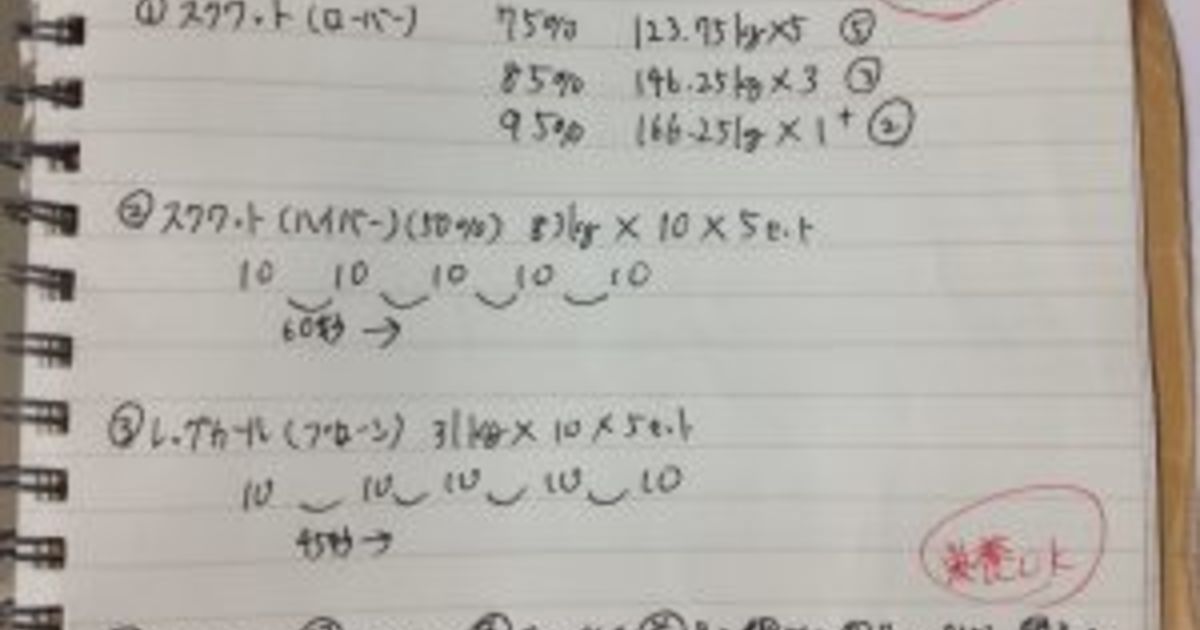 ①スクワット(ローバー) 75% 123.75kg×5 ⑤
85% 146.25kg×3 ③
95% 166.25kg×1+ ②
②スクワット(ハイバー)(50%) 87kg×10×5セット
10 10 10 10 10
60秒→
③レッグカール(プローン) 31kg×10×5セット
10 10 10 10 10
45秒→